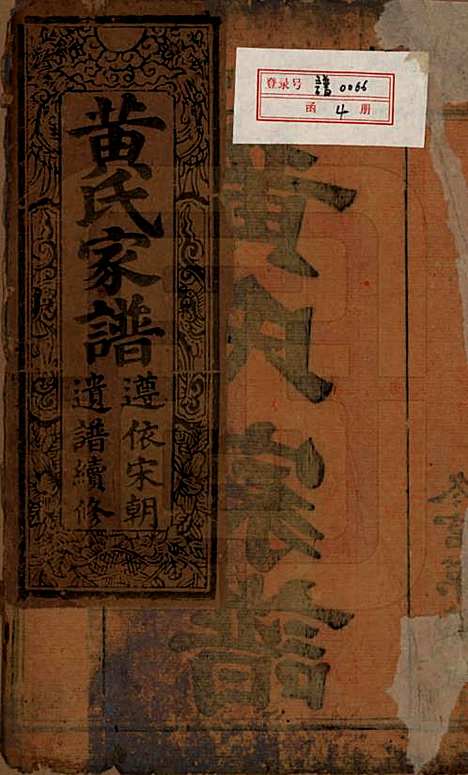 登录号 譜0066
函 4 册
黄氏家譜
遵依宋朝
遺譜續修
黄氏家譜